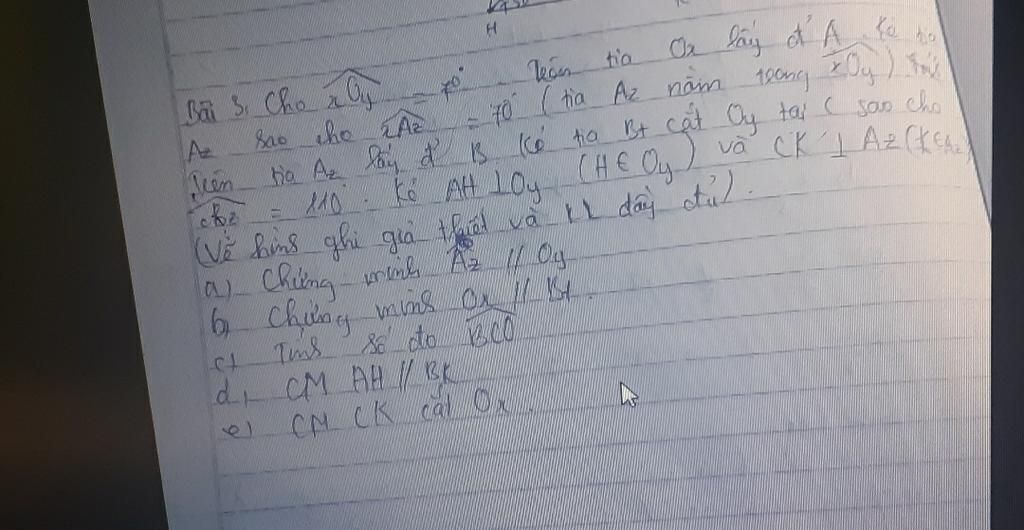 H
Bài 3. Cho xOy = 70° Trên tia Ox lấy đ' A. Kẻ tia
Az sao cho xAz = 70° (tia Az nằm trong xOy)
Trên tia Az lấy đ' B Kẻ tia Bt cắt Oy tại C sao cho
CBz = 110°. Kẻ AH ⊥ Oy (H ∈ Oy) và CK ⊥ Az (K ∈ Az)
(Vẽ hình ghi giả thiết và KL đầy đủ).
a) Chứng minh Az // Oy
b, Chứng minh Ox // Bt.
c, Tính số đo BCO
d, CM AH // BK
e) CM CK cắt Ox.